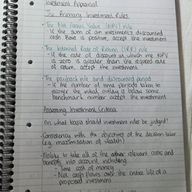 Investment Appraisal
The Primary Investment Rules
- The Net Present Value (NPV) rule
- If the sum of an investment's discounted
cash flows is positive, accept the investment
- The Internal Rate of Return (IRR) rule
- If the rate of discount at which the NPV
is zero is greater than the required rate
of return, accept the investment
- The payback rule and discounted period
- If the number of time periods taken to
recover the initial outlay is below some
benchmark number accept the investment
Assessing Investment Criteria
On what basis should investment rules be judged?
Consistency with the objectives of the decision maker
(e.g. maximisation of wealth)
Ability to take all of the other relevant costs and
benefits into account including:
- Time cost of money
- Cash flows over the entire life of a
proposed investment